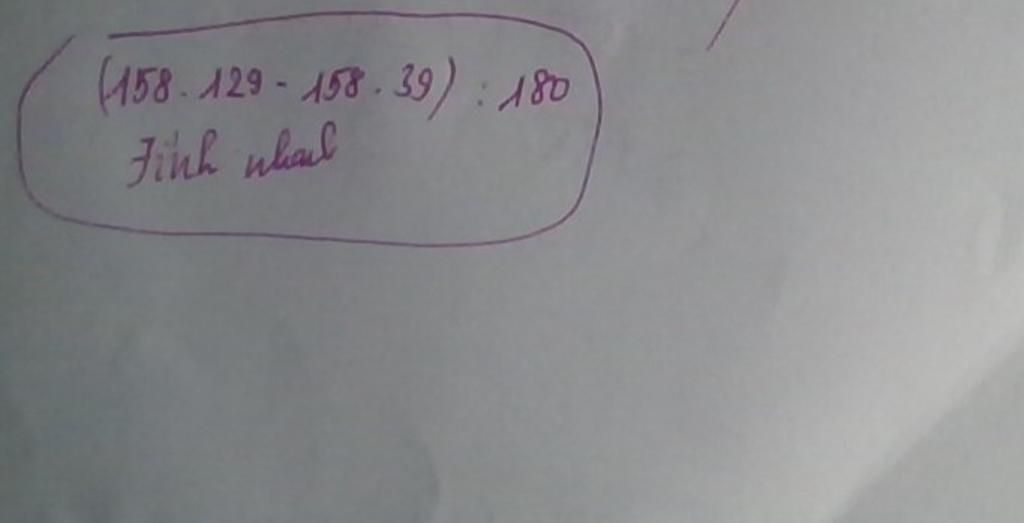 (158 . 129 - 158 . 39) : 180
Tính nhanh